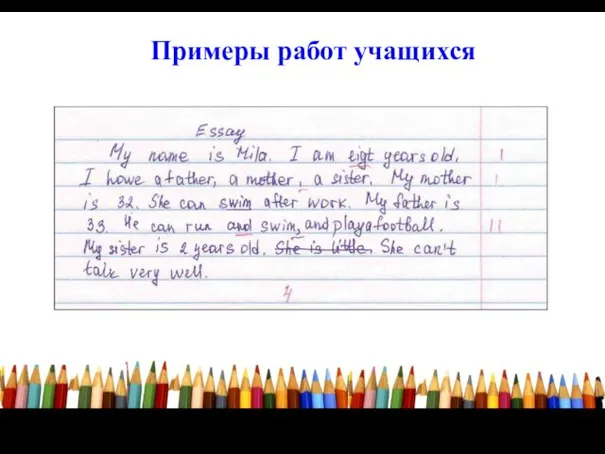 Примеры работ учащихся
Essay
My name is Mila. I am eigt years old. I
I howe a father, a mother, a sister. My mother I
is 32. She can swim after work. My father is
33. He can run and swim, and play a football. II
My sister is 2 years old. She is little. She can't
talk very well.
4